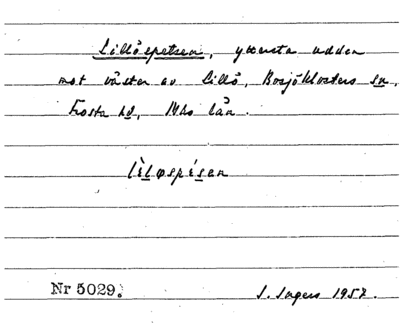 Lillöspetsen, yttersta udden
mot väster av Lillö, Bosjöklosters sn,
Frosta hd, Mlhs län.
lèløspésen
Nr 5029.
S. Ingers 1957.